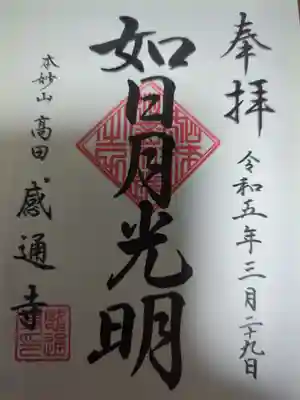 奉拝
令和五年三月二十九日
如日月光明
本妙山
高田
感通寺